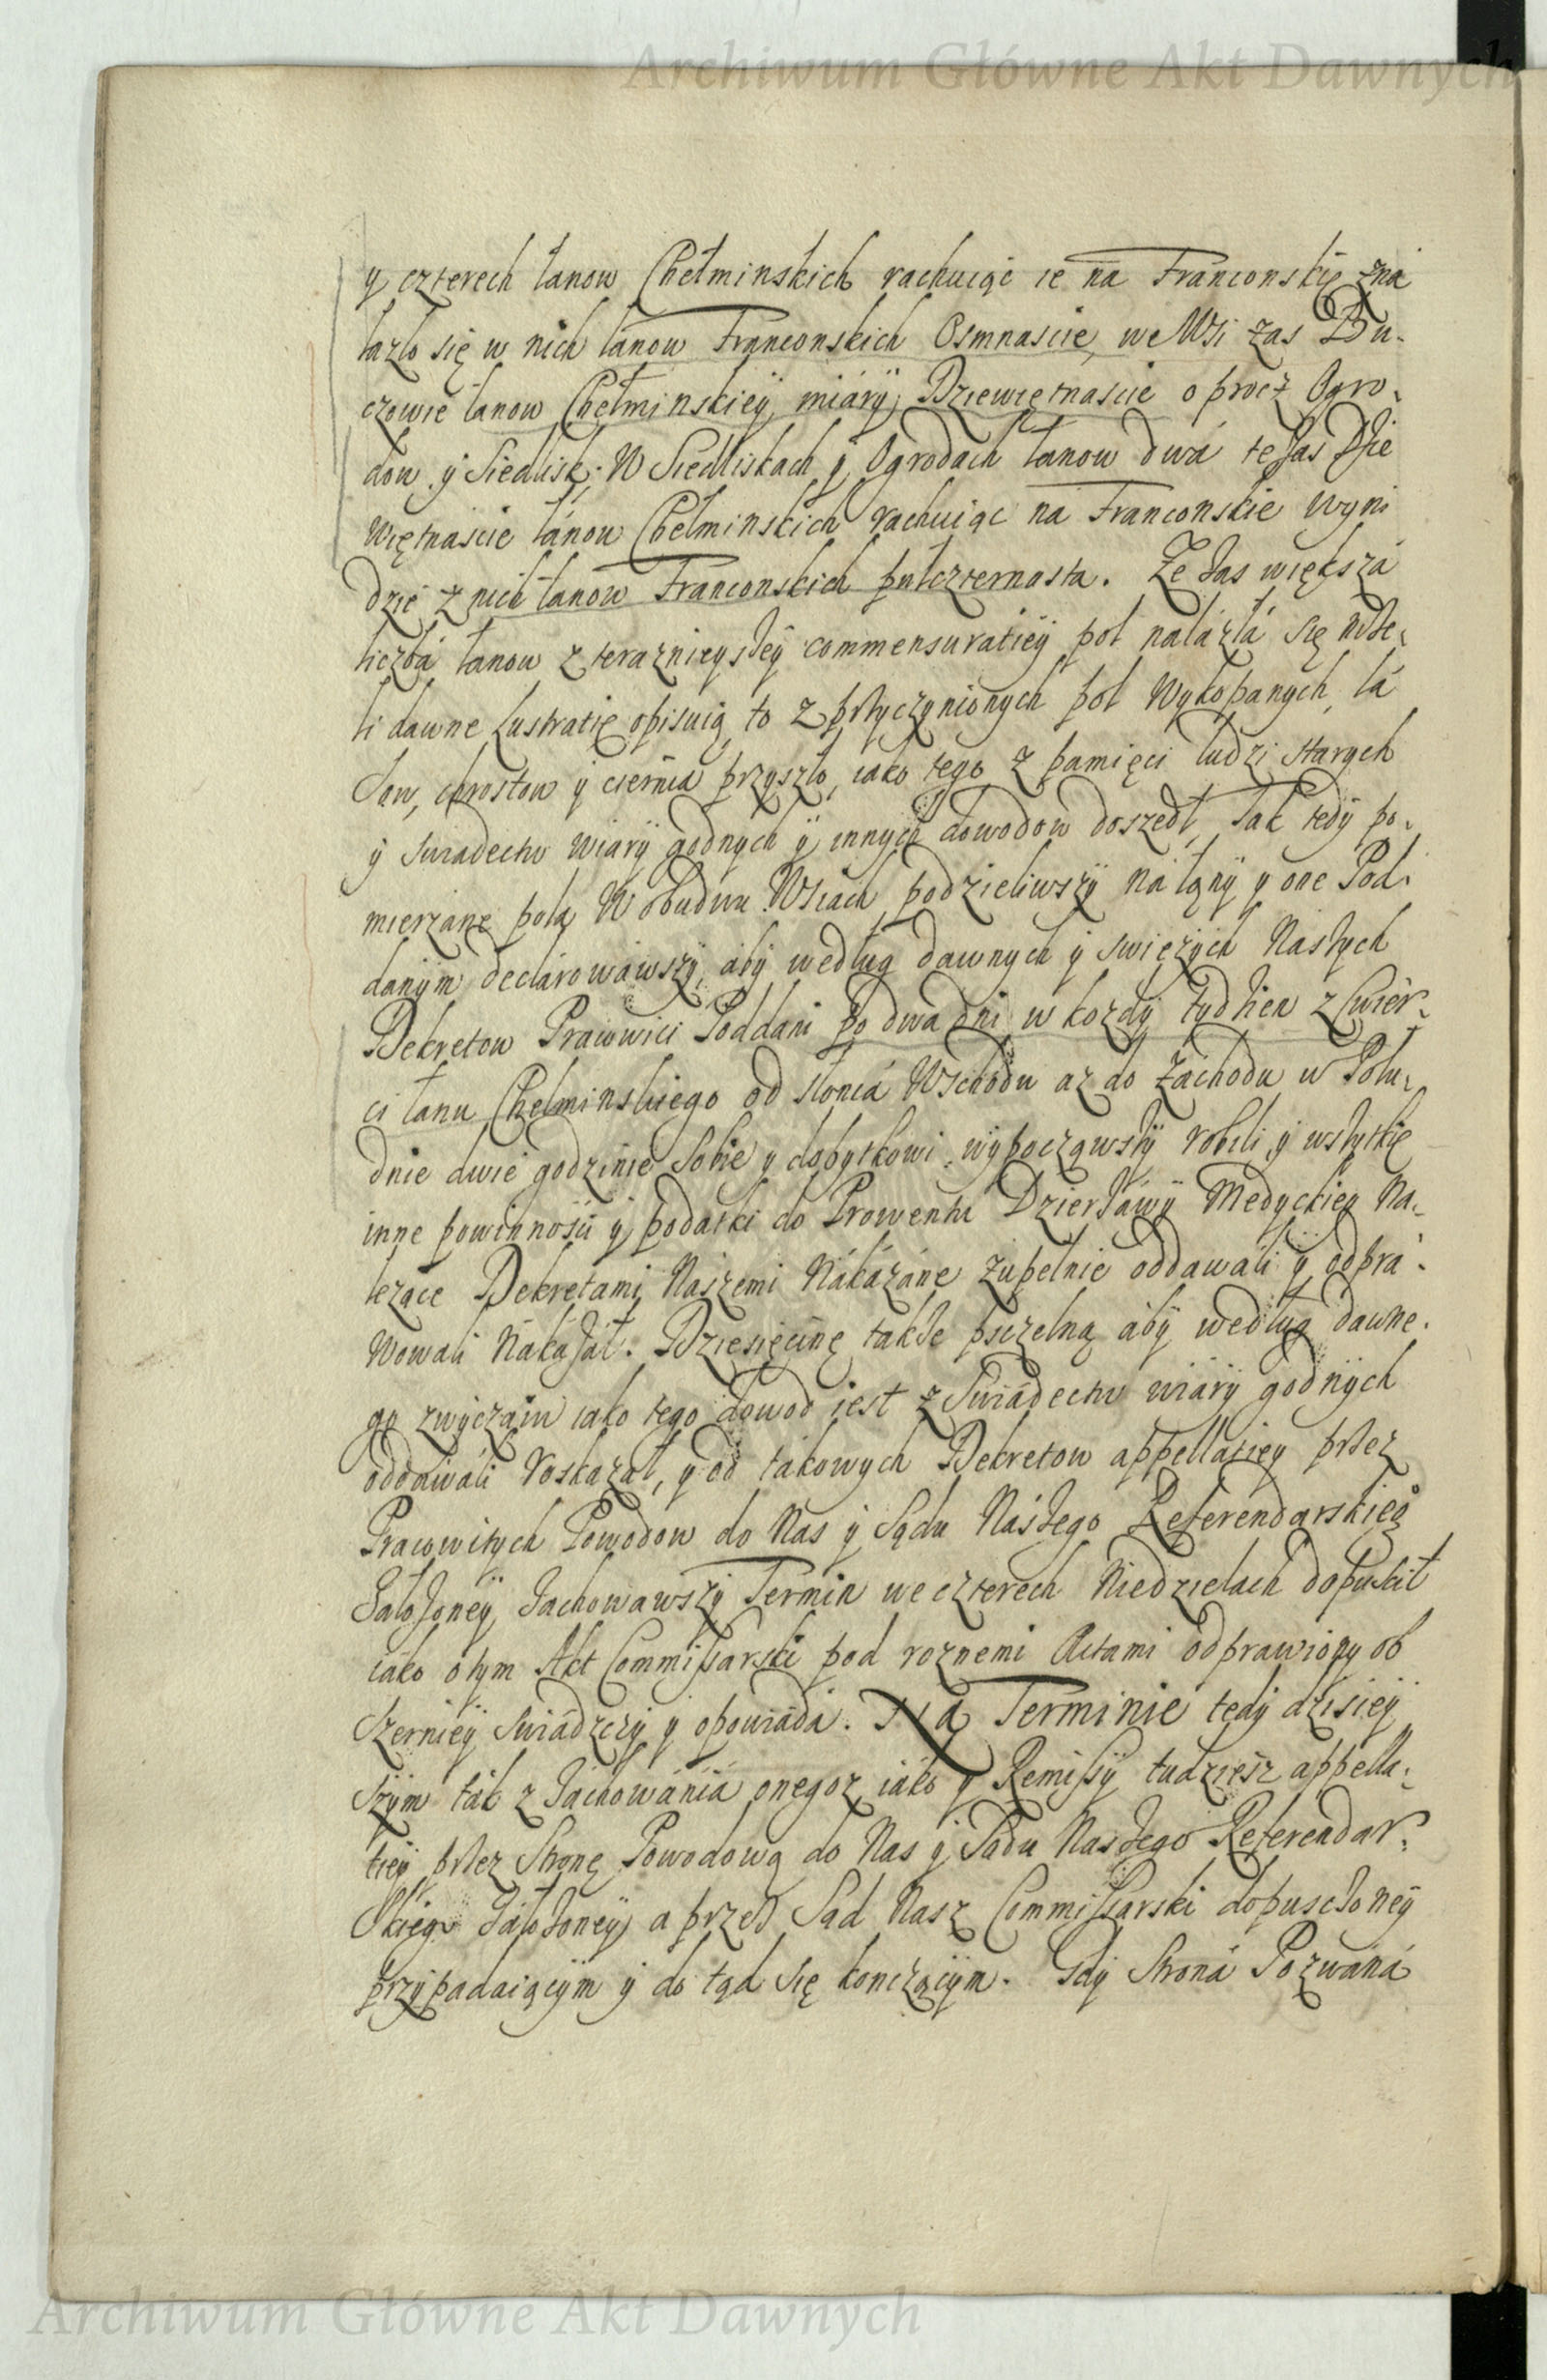 Archiwum Główne Akt Dawnych
y czterech łanow Chełminskich rachuiąc ie na Franconskie zna
lazło się w nich łanow Franconskich Osmnascie, we Wsi zas Bu-
czowie łanow Chełminskieÿ miárÿ Dziewiętnascie oprocz Ogro-
dow ÿ Siedlisk. W Siedliskach ÿ Ogrodach łanow dwá te zas Dzie
więtnascie łánow Chełminskich rachuiąc na Franconskie wyni
dzie z nich łanow Franconskich pułczternasta. Że zas większá
liczbá łanow z teraznieyszeÿ commensuratieÿ pol nalázłá się niże-
li dawne Lustratie opisuią to z przyczynionych pol wykopanych, lá
sow, chrostow ÿ cierniá przyszło, iako tego z pamięci ludzi starych
ÿ swiadectw wiarÿ godnych ÿ innych dowodow doszedł, Tak tedÿ po-
mierzane pola w obudwu Wsiach podzieliwszÿ ná łanÿ y one Pod-
danÿm declárowáwszÿ, abÿ według dawnych ÿ swieżych Naszych
Dekretow Pracowici Poddani po dwa dni w kozdÿ tydzien z Cwier-
ci łanu Chełminskiego od słoncá Wschodu az do Záchodu w Połu-
dnie dwie godzinie sobie y dobytkowi wÿpocząwszÿ robili, ÿ wszytkie
inne powinnosci ÿ podatki do Prowentu Dzierżáwÿ Medyckiey Na-
lezące Dekretami Naszemi Nákázáne zupełnie oddawáli ÿ odpra-
wowali Nákazał. Dziesięcinę także pszczelną ábÿ według dawne-
go zwÿczáiu iako tego dowod iest z Swiádectw wiárÿ godnÿch
oddawáli roskazał, y od takowych Dekretow appellatieÿ przez
Pracowitych Powodow do Nas ÿ Sądu Nászego Referendarskieg°
Założoneÿ, zachowawszÿ Termin we czterech Niedzielach dopuscił
iako o tym Akt Commissarski pod roznemi Actami odprawiony ob
szernieÿ swiádczÿ y opowiáda. Na Terminie tedÿ dzisieÿ
szÿm ták z Záchowániá onegoz iáko y Remissÿ tudziesz appella-
tieÿ przez Stronę Powodową do Nas ÿ Sądu Naszego Referendar-
skiego Założoneÿ a przed Sąd Nasz Commissarski dopuszczoneÿ
przÿpadaiącÿm ÿ do tąd się konczącÿm. Gdÿ Stroná Pozwáná
Archiwum Główne Akt Dawnych